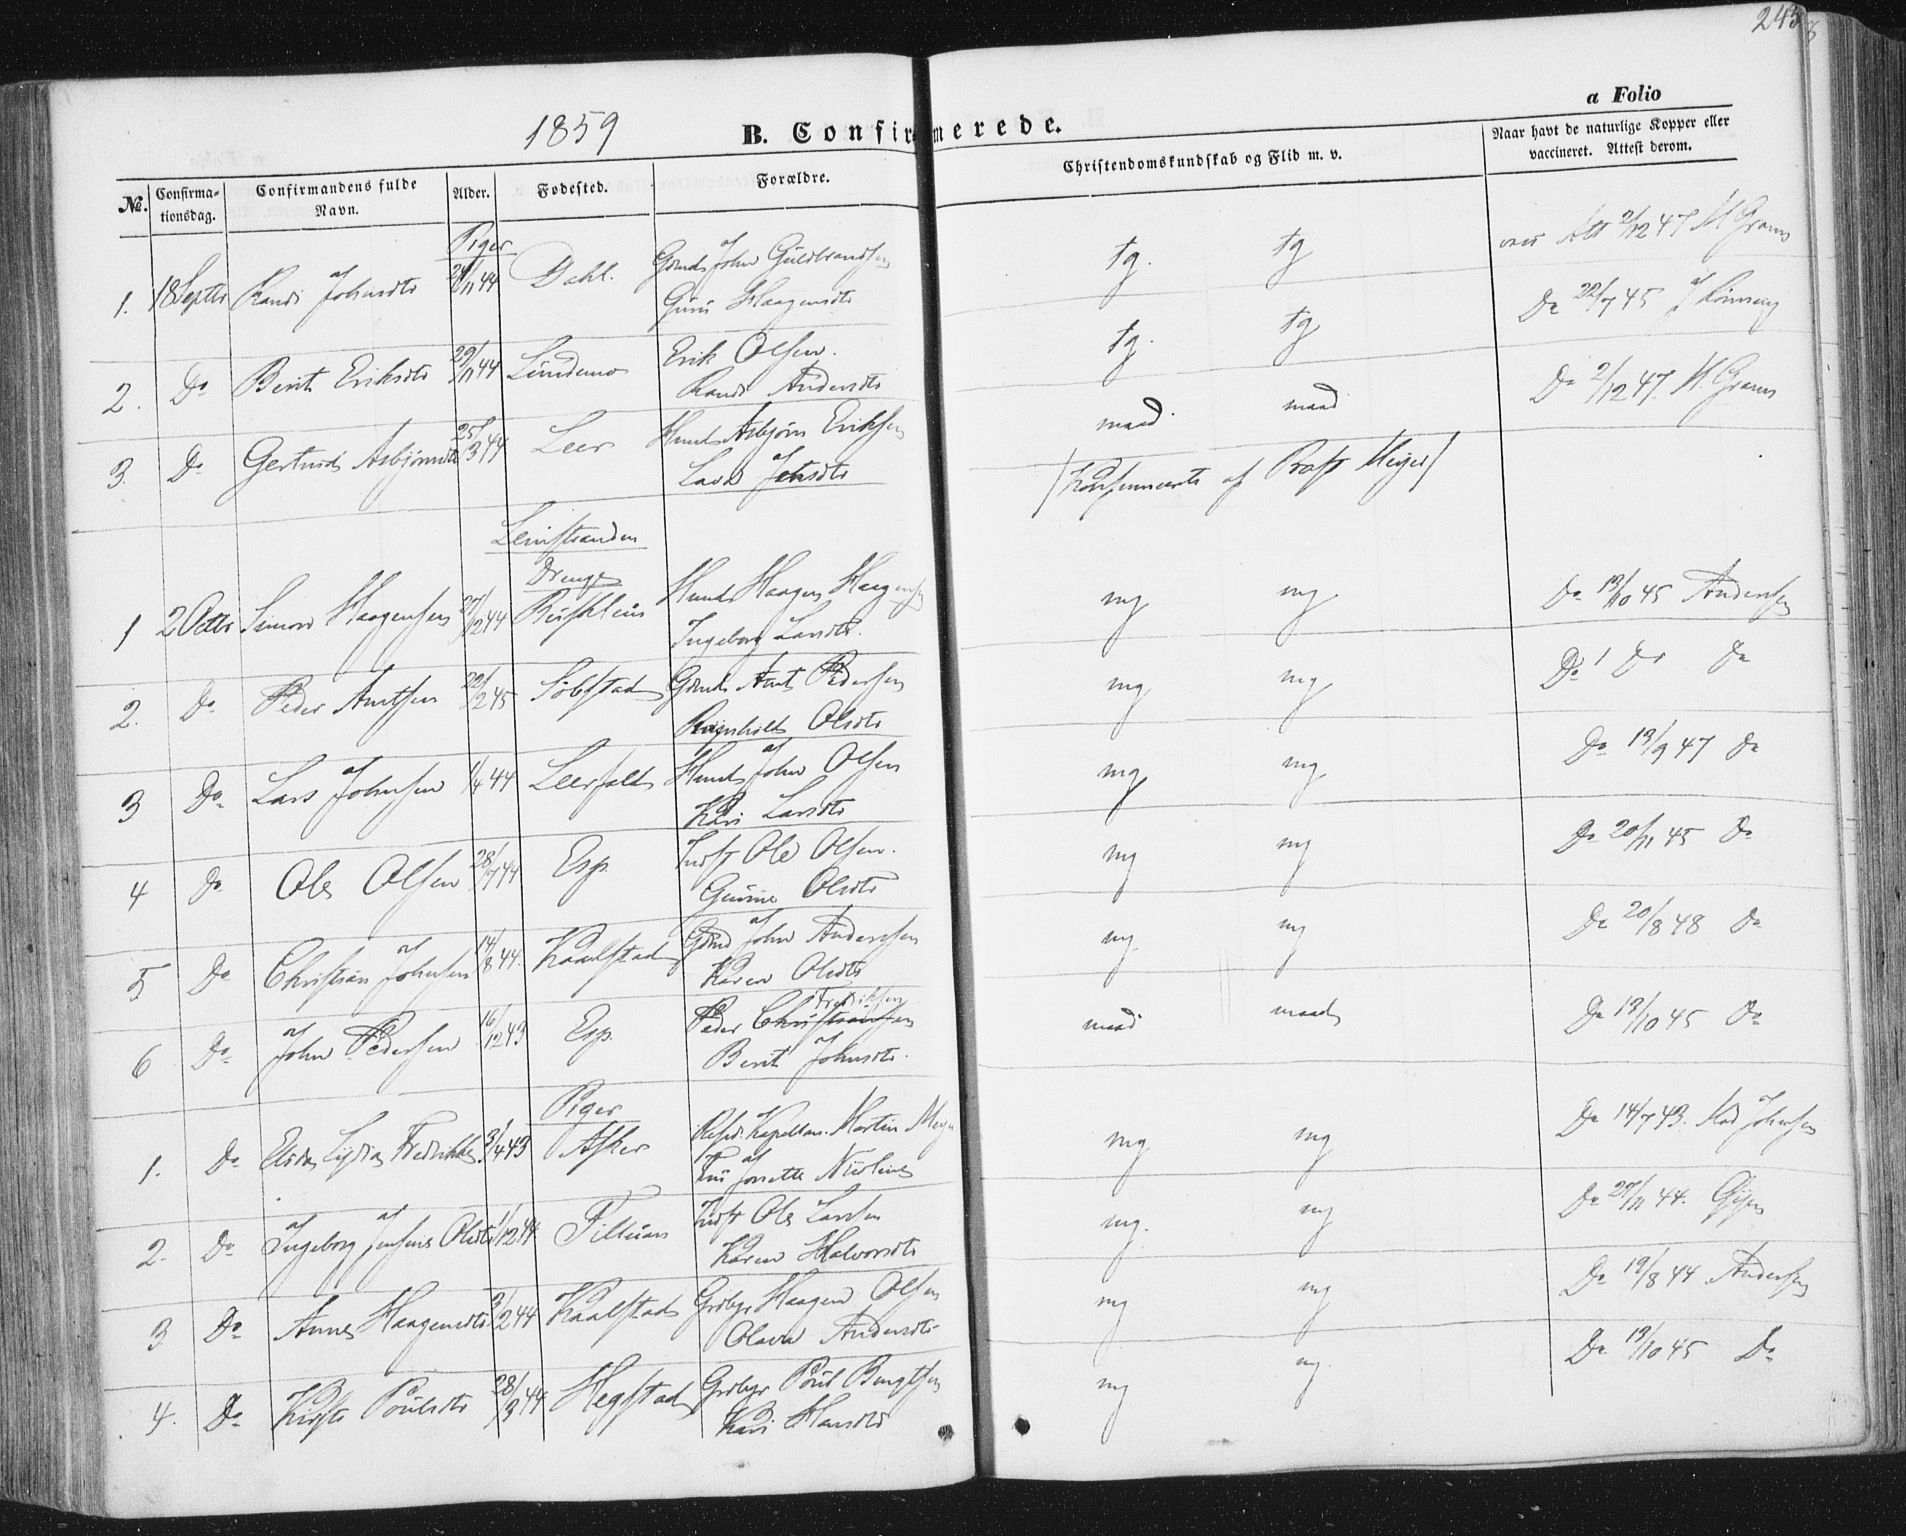 1859
B. Confirmerede.
a Folio
№.
Confirmationsdag.
Confirmandens fulde Navn.
Alder.
Fødested.
Forældre.
Christendomskundskab og Flid m. v.
Naar havt de naturlige Kopper eller vaccineret. Attest derom.
Piger
1. 18 Septbr Randi Johnsdtr /11 44 Dahl. Gmd John Guldbrandsen tg. tg Att 2/12 47 M Gram
Guru Haagensdtr
2. Do Berit Eriksdtr 29/11 44 Lundemo Erik Olsen. tg. tg Do 22/7 45 J Rønning
Randi Andersdtr
3. Do Gertrud Asbjørnsdtr 25/3 44 Leer Huusmd Asbjørn Eriksen maad. maad Do 2/12 47. M. Gram
Jensdtr
(Confirmerte af Prost Meyer)
Leinstranden
Drenge
1 2 Octbr Simon Haagensen 27/12 44 Huusmd Haagen Haagensen mg mg Do 13/10 45 Andersen
Ingeborg Larsdtr.
2. Do Peder Arntsen 22/2 45 Søbstad Gmd Arnt Pedersen mg mg Do Do Do
Ragnhild Olsdtr
3 Do Lars Johnsen 1/4 44 Leerfald Huusmd John Olsen mg mg Do 13/9 47 Do
Kari Larsdtr
4 Do Ole Olsen 28/7 44 Esp. Indst Ole Olsen. mg mg Do 20/11 45 Do
Olsdtr
5 Do Christian Johnsen 14/8 44. Kaalstad Gmd John Andersen mg. mg Do 20/8 48 Do
Karen Olsdtr
Fredriksen
6 Do John Pedersen 16/12 43 Esp. Peder Christiansen maad maad Do 13/10 45 Do
Berit Johnsdtr.
Piger
1. Do Lydia Fredrikke 3/4 43 Asker Resid. Kapellan. Martin Meyer mg mg Do 14/7 43. Johnsen
Nicoline
2. Do Ingeborg Jensine Olsdtr 1/12 44 Tilleran Indst Ole Larsen mg. mg Do 29/11 44.
Karen Halvorsdtr
3 Do Anne Haagensdtr 3/2 44 Kaalstad Grdbgr Haagen Olsen mg mg Do 19/8 44 Andersen
Olava Andersdtr
4. Do Kirsti Poulsdtr 28/3 44 Hegstad Grdbgr Poul Bengtsen mg mg. Do 13/10 45 Do
Kari Hansdtr